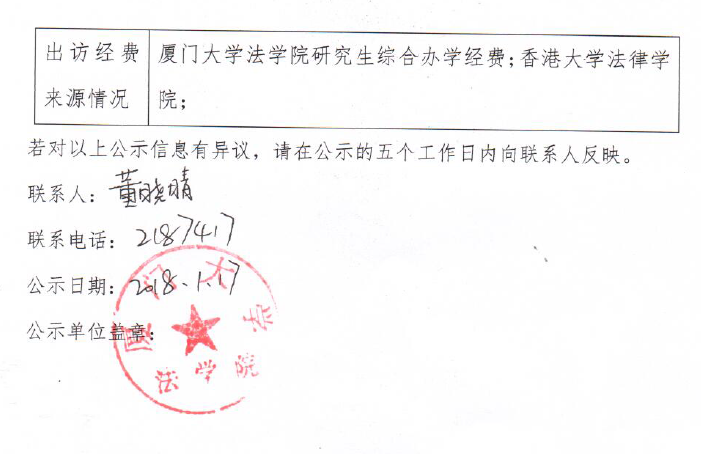 出访经费
来源情况
厦门大学法学院研究生综合办学经费；香港大学法律学
院；
若对以上公示信息有异议，请在公示的五个工作日内向联系人反映。
联系人：董晓晴
联系电话：2187417
公示日期：2018.1.17
公示单位盖章：
厦门大学
法学院